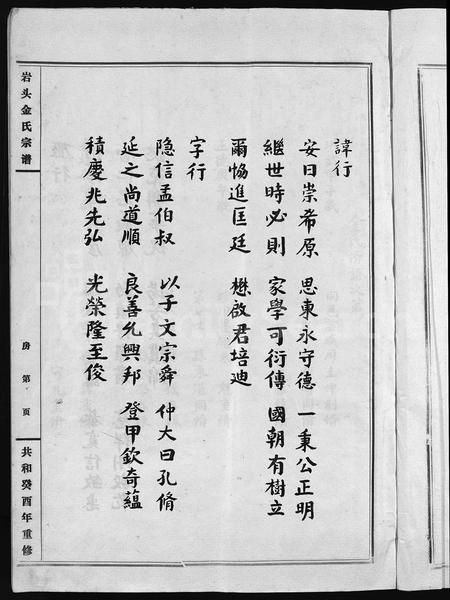 諱行
安日崇希原 思東永守德 一秉公正明
繼世時必則 家學可衍傳 國朝有樹立
爾恊進匡廷 懋啟君培迪
字行
隐信孟伯叔 以子文宗舜 仲大曰孔脩
延之尚道順 良善允興邦 登甲欽奇蘊
積慶兆先弘 光榮隆至俊
岩头金氏宗谱
房 第 页
共和癸酉年重修